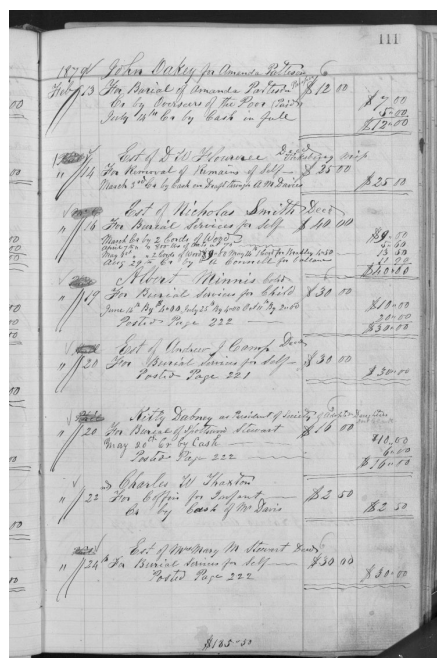 111
1879 John Oakey for Amanda Patterson
Feb 13 For Burial of Amanda Patterson $12 00
Cr by Overseers of the Poor (Paid) $7.00
July 14th Cr by Cash in full 5.00
$12.00
Est of D W Flournee Decd
" 14 For Removal of Remains of Self $25 00
March 3rd Cr by Cash in full through A M Davies $25 00
Est of Nicholas Smith Decd
" 16 For Burial Services for Self $40 00
March Cr by 2 Cords of Wood $9.00
13 50
Aug 29th Cr by in balance
$40.00
Albert Minnis Cold
" 19 For Burial Services for Child $30 00
June 14th By $4.00 July 25th By 4.00 Oct 11th By 2.00 $10.00
Posted Page 222 20.00
$30.00
Est of Andrew J Camp Decd
" 20 For Burial Services for Self $30 00
Posted Page 221 $30.00
Kitty Dabney as President of Society of Daughters
" 20 For Burial of Stewart $16 00
May 20th Cr by Cash $10.00
Posted Page 222 6.00
$16.00
Charles W Thaxton
" 22 For Coffin for Infant $2 50
Cr by Cash of Mr Davis $2 50
Est of Mrs Mary M Stewart Decd
" 24th For Burial Services for Self $30 00
Posted Page 222 $30.00
$185.50